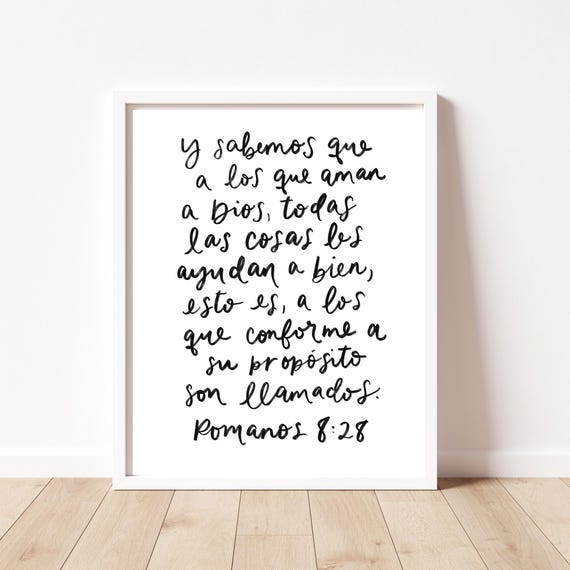 y sabemos que
a los que aman
a Dios, todas
las cosas les
ayudan a bien,
esto es, a los
que conforme a
su propósito
son llamados.
Romanos 8:28